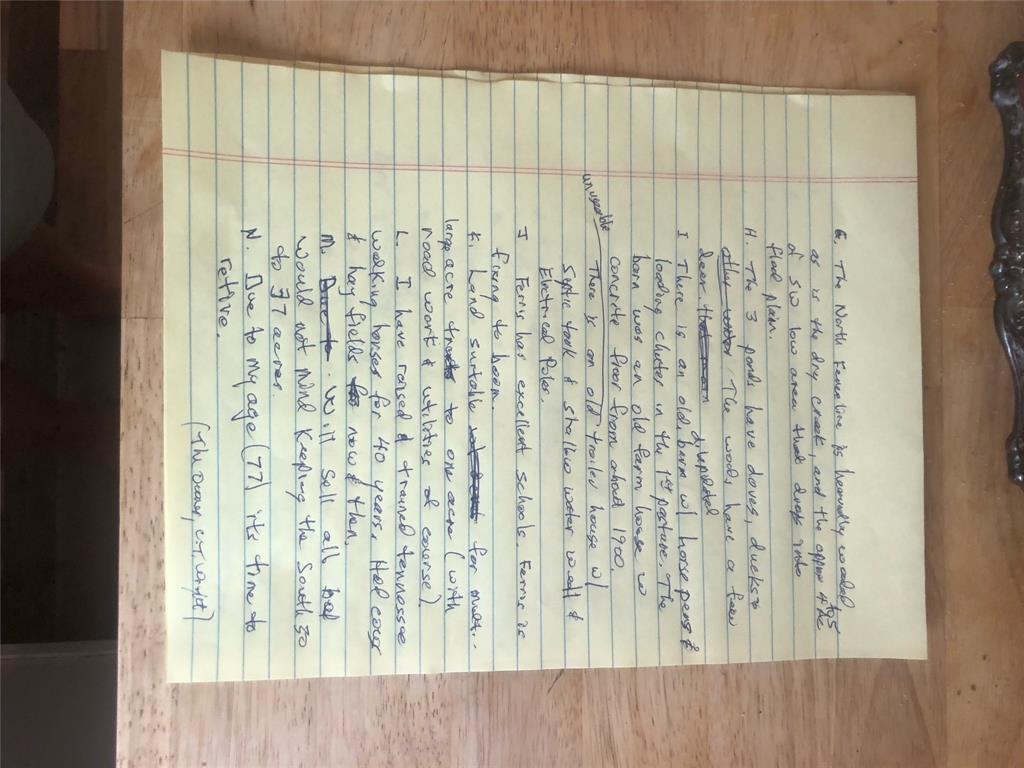 G. The North Fenceline is heavily wooded
as is the dry creek, and the approx 4 to 5
of SW low area that drops into
flood plain.
H. The 3 ponds have doves, ducks &
The woods have a few
deer
dilapidated
I There is an old barn w/ horse pens &
loading chuter in the 1st pasture. The
barn was an old farm house w
concrete floor from about 1900.
unuseable
There is an old trailer house w/
septic tank & stallbio water well &
Electrical Poles.
J Ferris has excellent schools. Ferris is
fixing to boom.
K. Land suitable for mult.
large acre to one acre (with
road work & utilities of course).
L. I have raised & trained Tennessee
walking horses for 40 years. Had cows
& hay fields now & then.
M. Will sell all but
would not mind keeping the South 30
to 37 acres.
N. Due to my age (77) its time to
retire.
(The Owner,